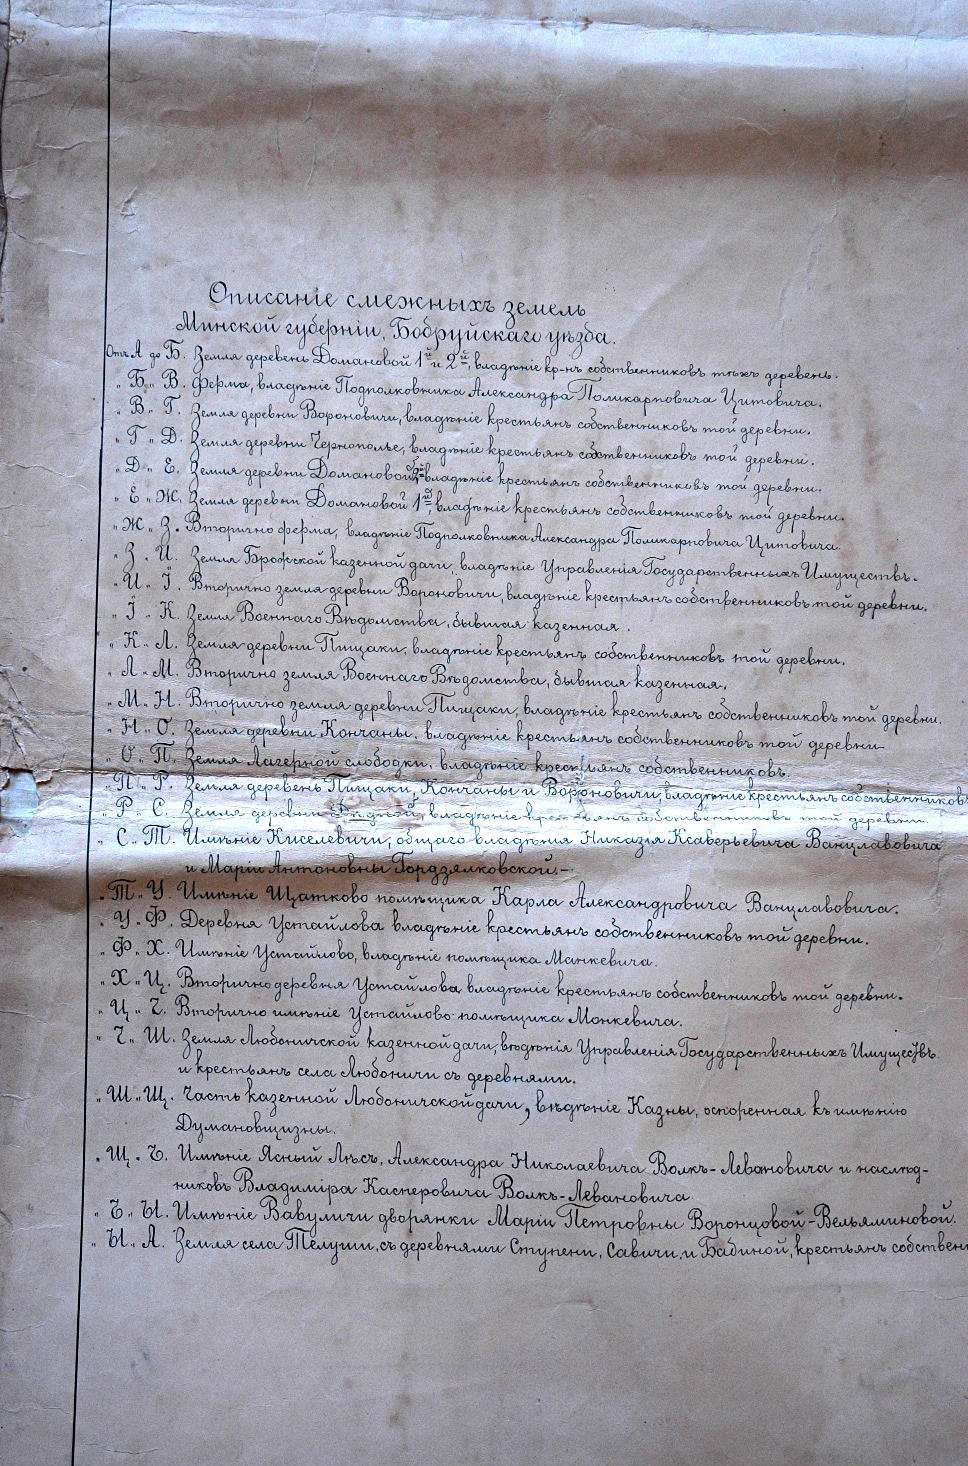 Описаніе смежныхъ земель
Минской губерніи, Бобруйскаго уѣзда.
Отъ А до Б. Земля деревень Домановой 1й и 2й, владѣніе кр-нъ собственниковъ тѣхъ деревень.
„ Б „ В. Ферма, владѣніе Подполковника Александра Поликарповича Цитовича.
„ В „ Г. Земля деревни Вороновичи, владѣніе крестьянъ собственниковъ той деревни.
„ Г „ Д. Земля деревни Чернополье, владѣніе крестьянъ собственниковъ той деревни.
„ Д „ Е. Земля деревни Домановой 2й владѣніе крестьянъ собственниковъ той деревни.
„ Е „ Ж. Земля деревни Домановой 1й, владѣніе крестьянъ собственниковъ той деревни.
„ Ж „ З. Вторично ферма, владѣніе Подполковника Александра Поликарповича Цитовича.
„ З „ И. Земля казенной дачи, владѣніе Управленія Государственныхъ Имуществъ.
„ И „ І. Вторично земля деревни Вороновичи, владѣніе крестьянъ собственниковъ той деревни.
„ І „ К. Земля Военнаго Вѣдомства, бывшая казенная.
„ К „ Л. Земля деревни Пищаки, владѣніе крестьянъ собственниковъ той деревни.
„ Л „ М. Вторично земля Военнаго Вѣдомства, бывшая казенная.
„ М „ Н. Вторично земля деревни Пищаки, владѣніе крестьянъ собственниковъ той деревни.
„ Н „ О. Земля деревни Кончаны, владѣніе крестьянъ собственниковъ той деревни
„ О „ П. Земля Лагерной слободки, владѣніе крестьянъ собственниковъ.
„ П „ Р. Земля деревень Пищаки, Кончаны и Вороновичи, владѣніе крестьянъ собственниковъ
„ Р „ С. Земля деревни владѣніе крестьянъ собственниковъ той деревни
„ С „ Т. Имѣніе Киселевичи, общаго владѣнія Никазія Ксаверьевича Ванцлавовича
и Маріи Антоновны Гордзялковской.-
„ Т „ У. Имѣніе Щатково помѣщика Карла Александровича Ванцлавовича.
„ У „ Ф. Деревня Устайлова владѣніе крестьянъ собственниковъ той деревни.
„ Ф „ Х. Имѣніе Устайлово, владѣніе помѣщика Манкевича.
„ Х „ Ц. Вторично деревня Устайлова владѣніе крестьянъ собственниковъ той деревни.
„ Ц „ Ч. Вторично имѣніе Устайлово помѣщика Монкевича.
„ Ч „ Ш. Земля Любоничской казенной дачи, вѣдѣнія Управленія Государственныхъ Имуществъ
и крестьянъ села Любоничи съ деревнями.
„ Ш „ Щ. Часть казенной Любоничской дачи, вѣдѣніе Казны, оспоренная къ имѣнію
Думановщизны.
„ Щ „ Ъ. Имѣніе Ясный Лѣсъ, Александра Николаевича Волкъ-Левановича и наслѣд-
никовъ Владиміра Касперовича Волкъ-Левановича
„ Ъ „ Ы. Имѣніе Вавуличи дворянки Маріи Петровны Воронцовой-Вельяминовой.
„ Ы „ А. Земля села Телуши, съ деревнями Ступени, Савичи, и Бабиной, крестьянъ собствен